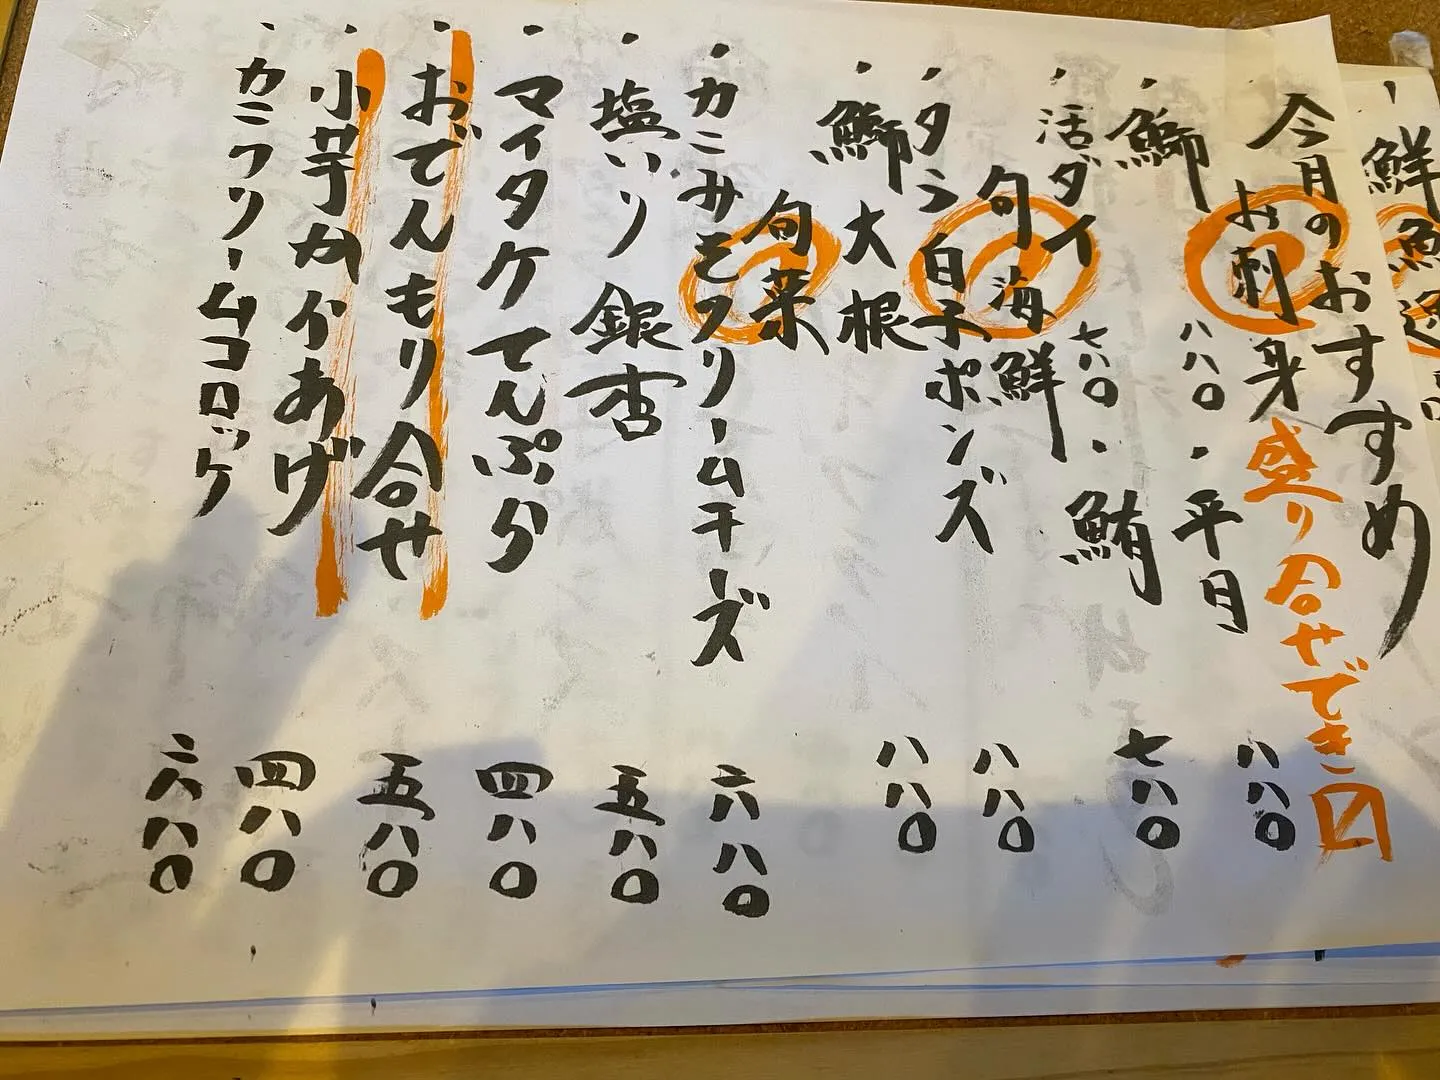 鮮魚
今月のおすすめ
お刺身盛り合せでき〼
・鰤 八八〇・平目 八八〇
・活ダイ 七八〇・鮪 七八〇
旬海鮮
・タラ白子ポンズ 八八〇
・鰤大根 八八〇
旬菜
・カニみそクリームチーズ 六八〇
・塩いり銀杏 五八〇
・マイタケてんぷら 四八〇
・おでんもり合せ 五八〇
・小芋かイあげ 四八〇
・カニクリームコロッケ 六八〇